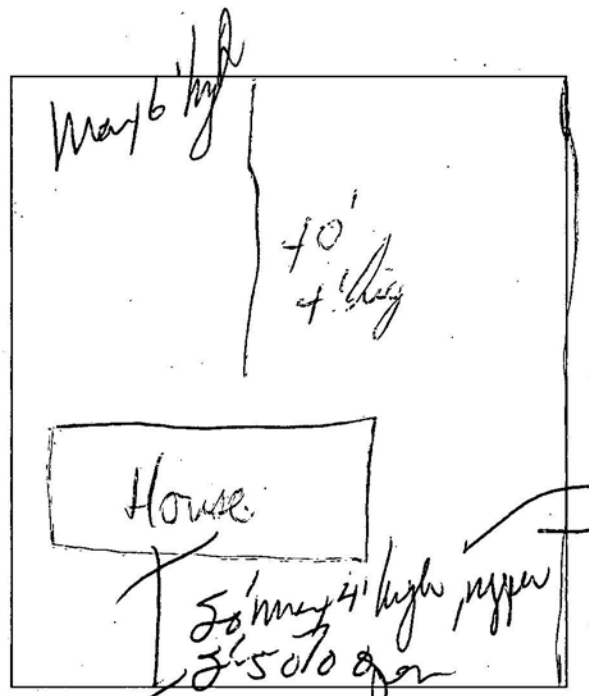 6' high
40'
4' high
House
50' max 4' high, upper
50% open